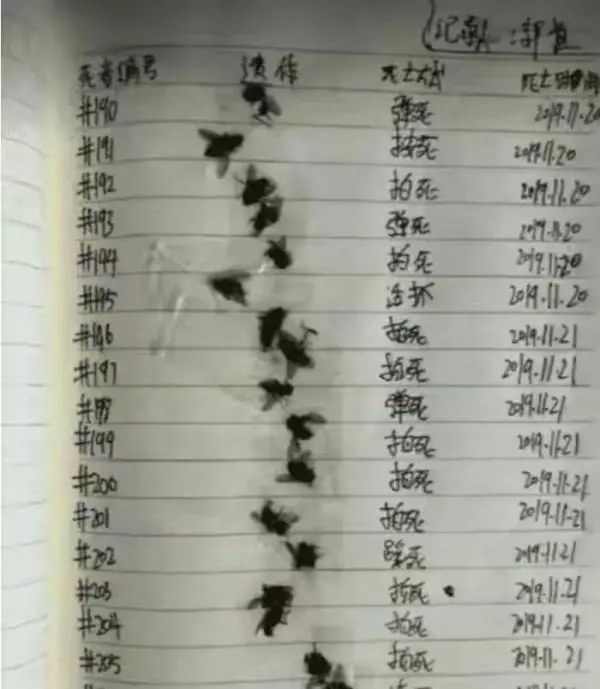 记录人:郭
死者编号 遗体 死亡方式 死亡时间
#190 弹死 2019.11.20
#191 按死 2019.11.20
#192 拍死 2019.11.20
#193 弹死 2019.11.20
#194 拍死 2019.11.20
#195 活抓 2019.11.20
#196 拍死 2019.11.21
#197 拍死 2019.11.21
#198 弹死 2019.11.21
#199 拍死 2019.11.21
#200 拍死 2019.11.21
#201 拍死 2019.11.21
#202 踩死 2019.11.21
#203 拍死 2019.11.21
#204 拍死 2019.11.21
#205 拍死 2019.11.21